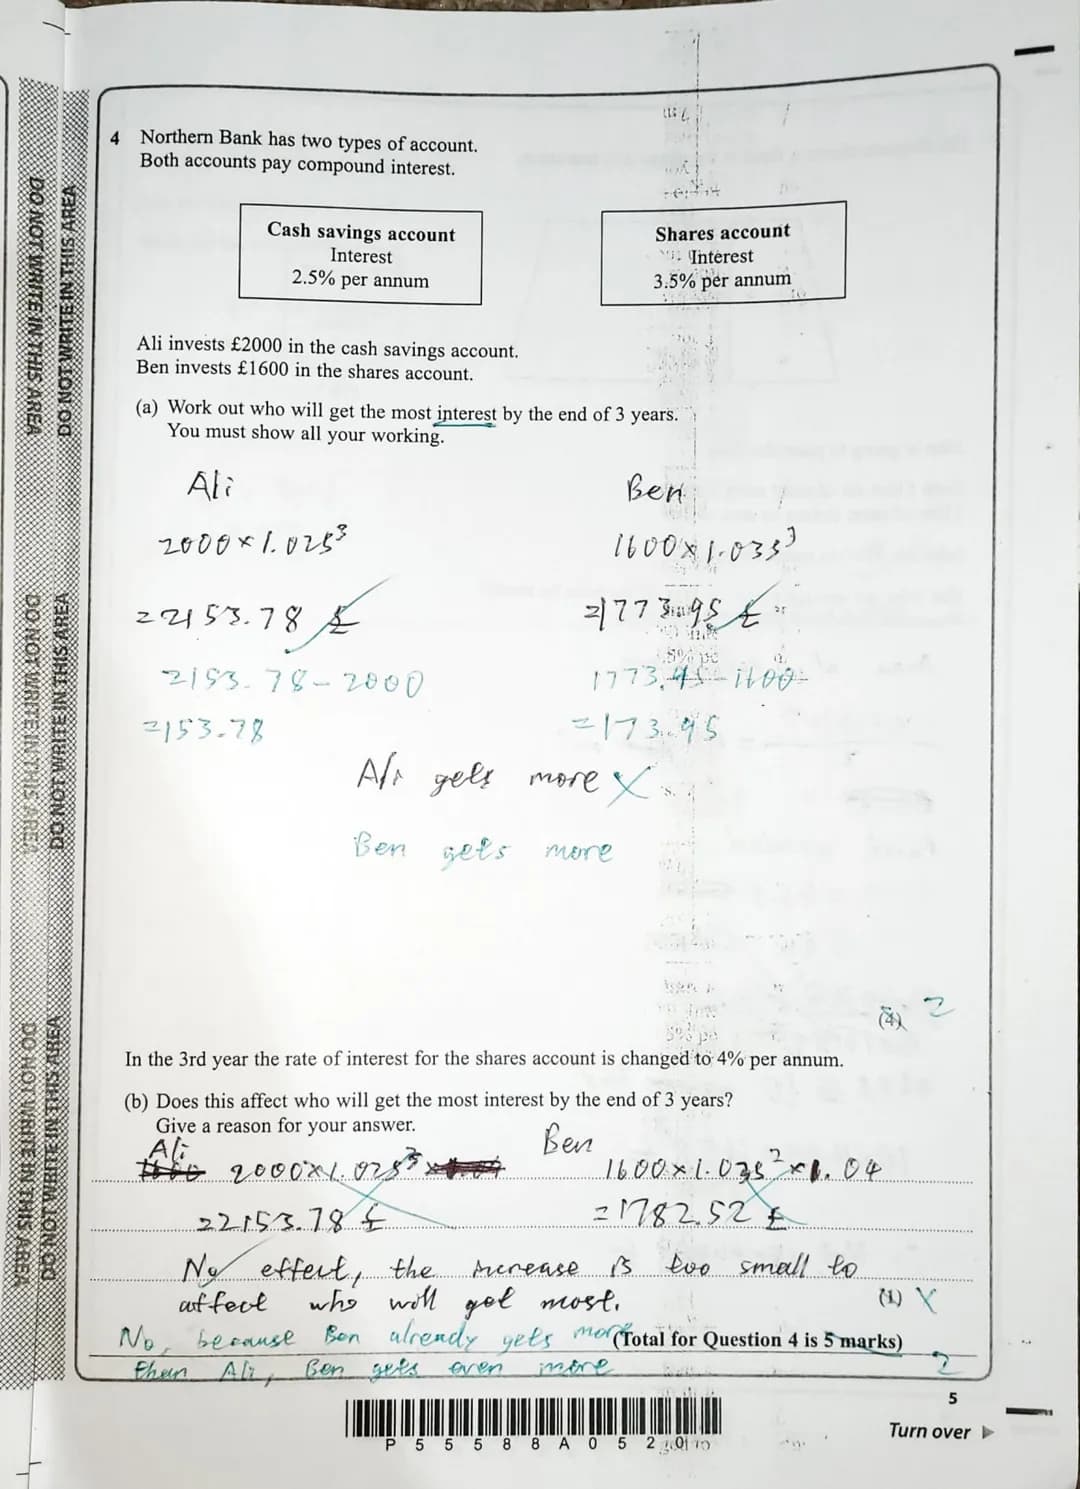 4 Northern Bank has two types of account.
Both accounts pay compound interest.
Cash savings account
Interest
2.5% per annum
Shares account
Interest
3.5% per annum
Ali invests £2000 in the cash savings account.
Ben invests £1600 in the shares account.
(a) Work out who will get the most interest by the end of 3 years.
You must show all your working.
Ali
2000×1.025³
=2153.78 £
2153.78-2000
=153.78
Ben
1600×1.035³
=1773.95 £
1773.95-1600
=173.95
Ali gets more X
Ben gets more
(4) 2
In the 3rd year the rate of interest for the shares account is changed to 4% per annum.
(b) Does this affect who will get the most interest by the end of 3 years?
Give a reason for your answer.
Ali
2000×1.025³
=2153.78 £
Ben
1600×1.035²×1.04
=1782.52 £
No effect, the increase is too small to
affect who will get most.
(1) X
No, because Ben already gets more
(Total for Question 4 is 5 marks)
than Ali, Ben gets even more
2
5
Turn over
P 5 5 5 8 8 A 0 5 2 0
DO NOT WRITE IN THIS AREA
DO NOT WRITE IN THIS AREA
DO NOT WRITE IN THIS AREA
DO NOT WRITE IN THIS AREA
DO NOT WRITE IN THIS AREA
DO NOT WRITE IN THIS AREA